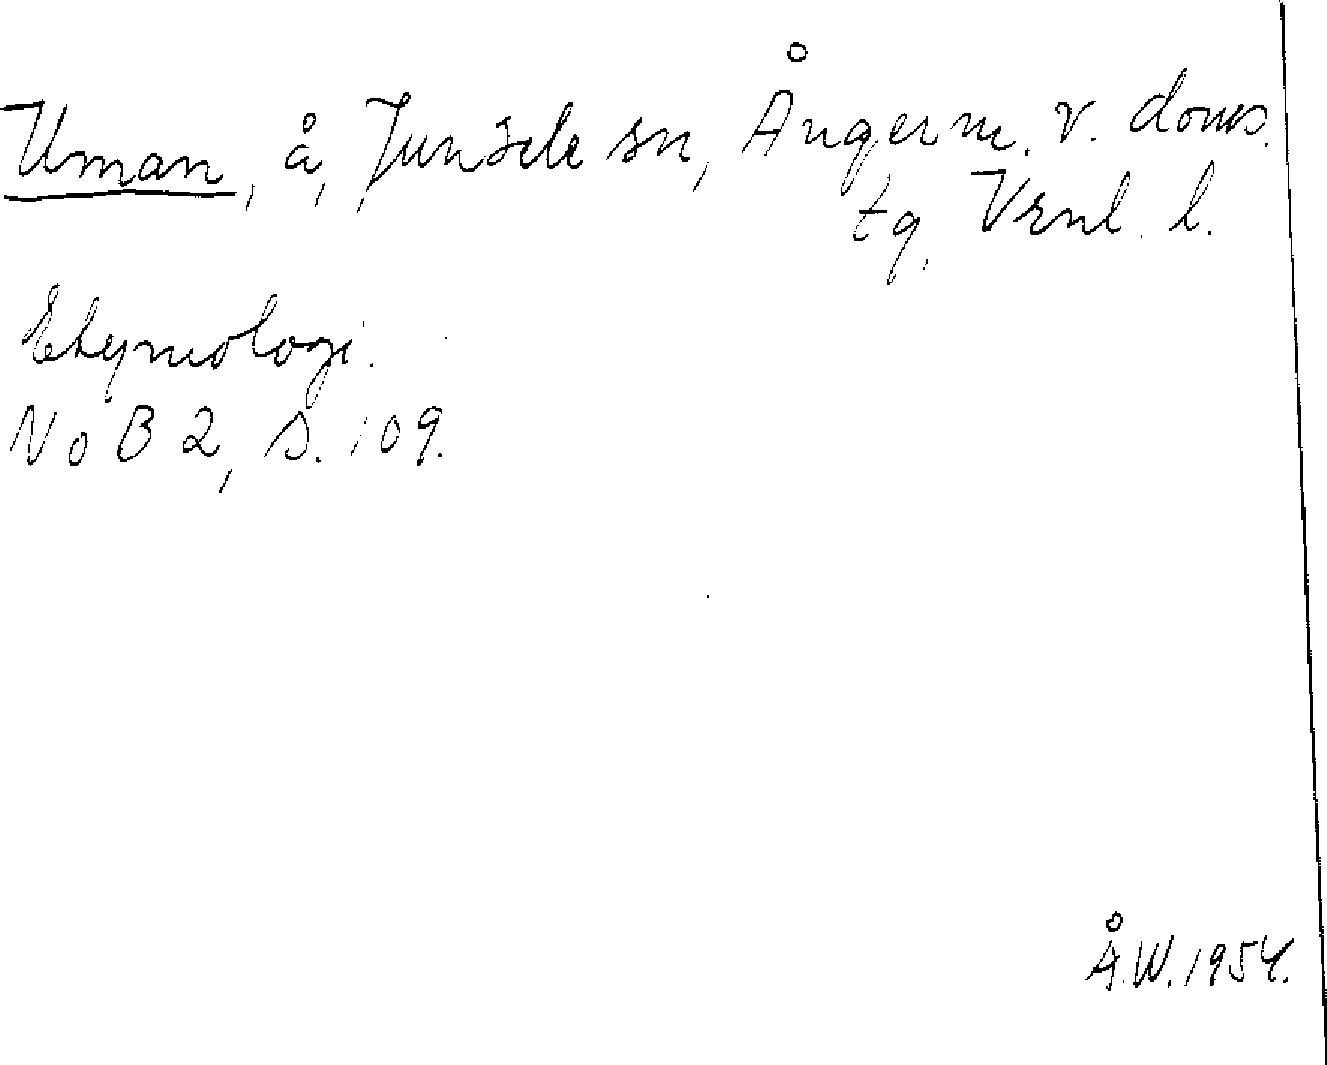 Uman, å, Junsele sn, Ångerm. v. doms.
tg, Vrnl. l.
Etymologi.
NoB 2, s. 109.
Å.W. 1954.